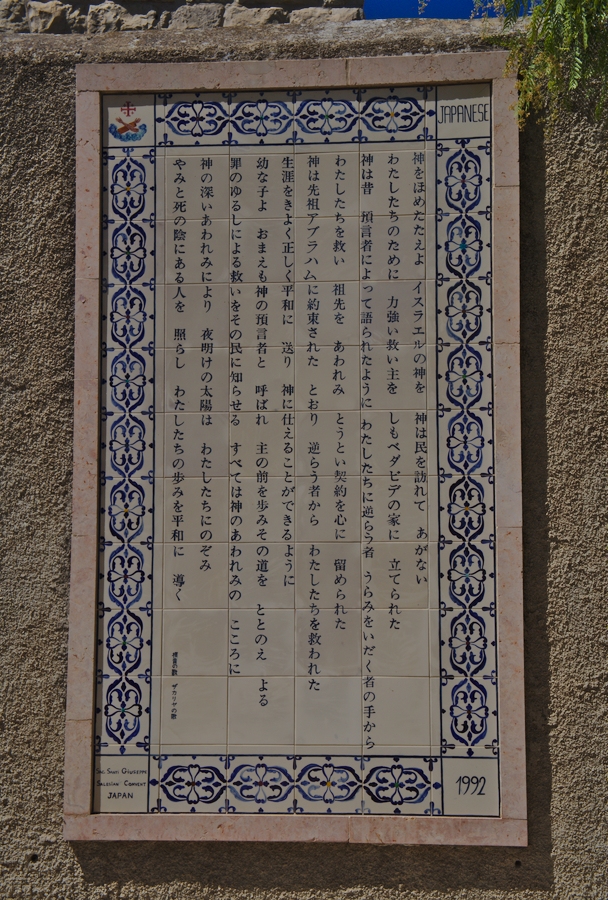 JAPANESE
神をほめたたえよ イスラエルの神を 神は民を訪れて あがない
わたしたちのために 力強い救い主を しもべダビデの家に 立てられた
神は昔 預言者によって語られたように わたしたちに逆らう者 うらみをいだく者の手から
わたしたちを救い 祖先を あわれみ とうとい契約を心に 留められた
神は先祖アブラハムに約束された とおり 逆らう者から わたしたちを救われた
生涯をきよく正しく平和に 送り 神に仕えることができるように
幼な子よ おまえも神の預言者と 呼ばれ 主の前を歩みその道を ととのえ よる
罪のゆるしによる救いをその民に知らせる すべては神のあわれみの こころに
神の深いあわれみにより 夜明けの太陽は わたしたちにのぞみ
やみと死の陰にある人を 照らし わたしたちの歩みを平和に 導く
ザカリヤの歌
JAPAN
1992